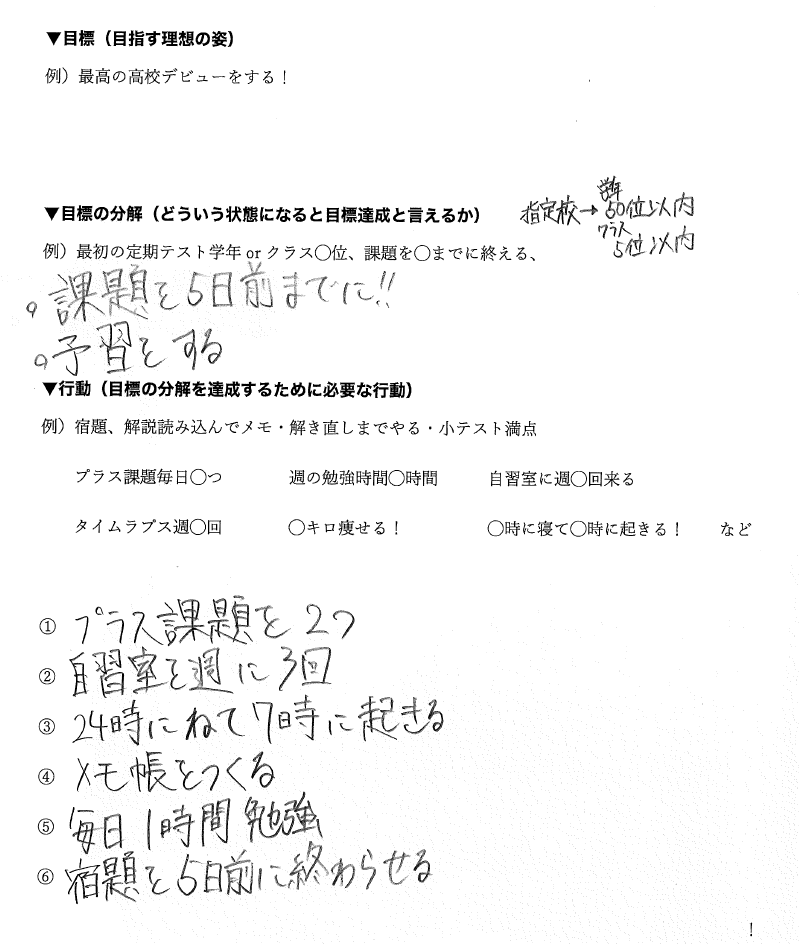 ▼目標（目指す理想の姿）
例）最高の高校デビューをする！
学年
▼目標の分解（どういう状態になると目標達成と言えるか） 指定校→50位以内
クラス
5位以内
例）最初の定期テスト学年 or クラス〇位、課題を〇までに終える、
。課題を5日前までに!!
。予習をする
▼行動（目標の分解を達成するために必要な行動）
例）宿題、解説読み込んでメモ・解き直しまでやる・小テスト満点
プラス課題毎日〇つ 週の勉強時間〇時間 自習室に週〇回来る
タイムラプス週〇回 〇キロ痩せる！ 〇時に寝て〇時に起きる！ など
① プラス課題を2つ
② 自習室を週に3回
③ 24時にねて7時に起きる
④ メモ帳をつくる
⑤ 毎日1時間勉強
⑥ 宿題を5日前に終わらせる
！